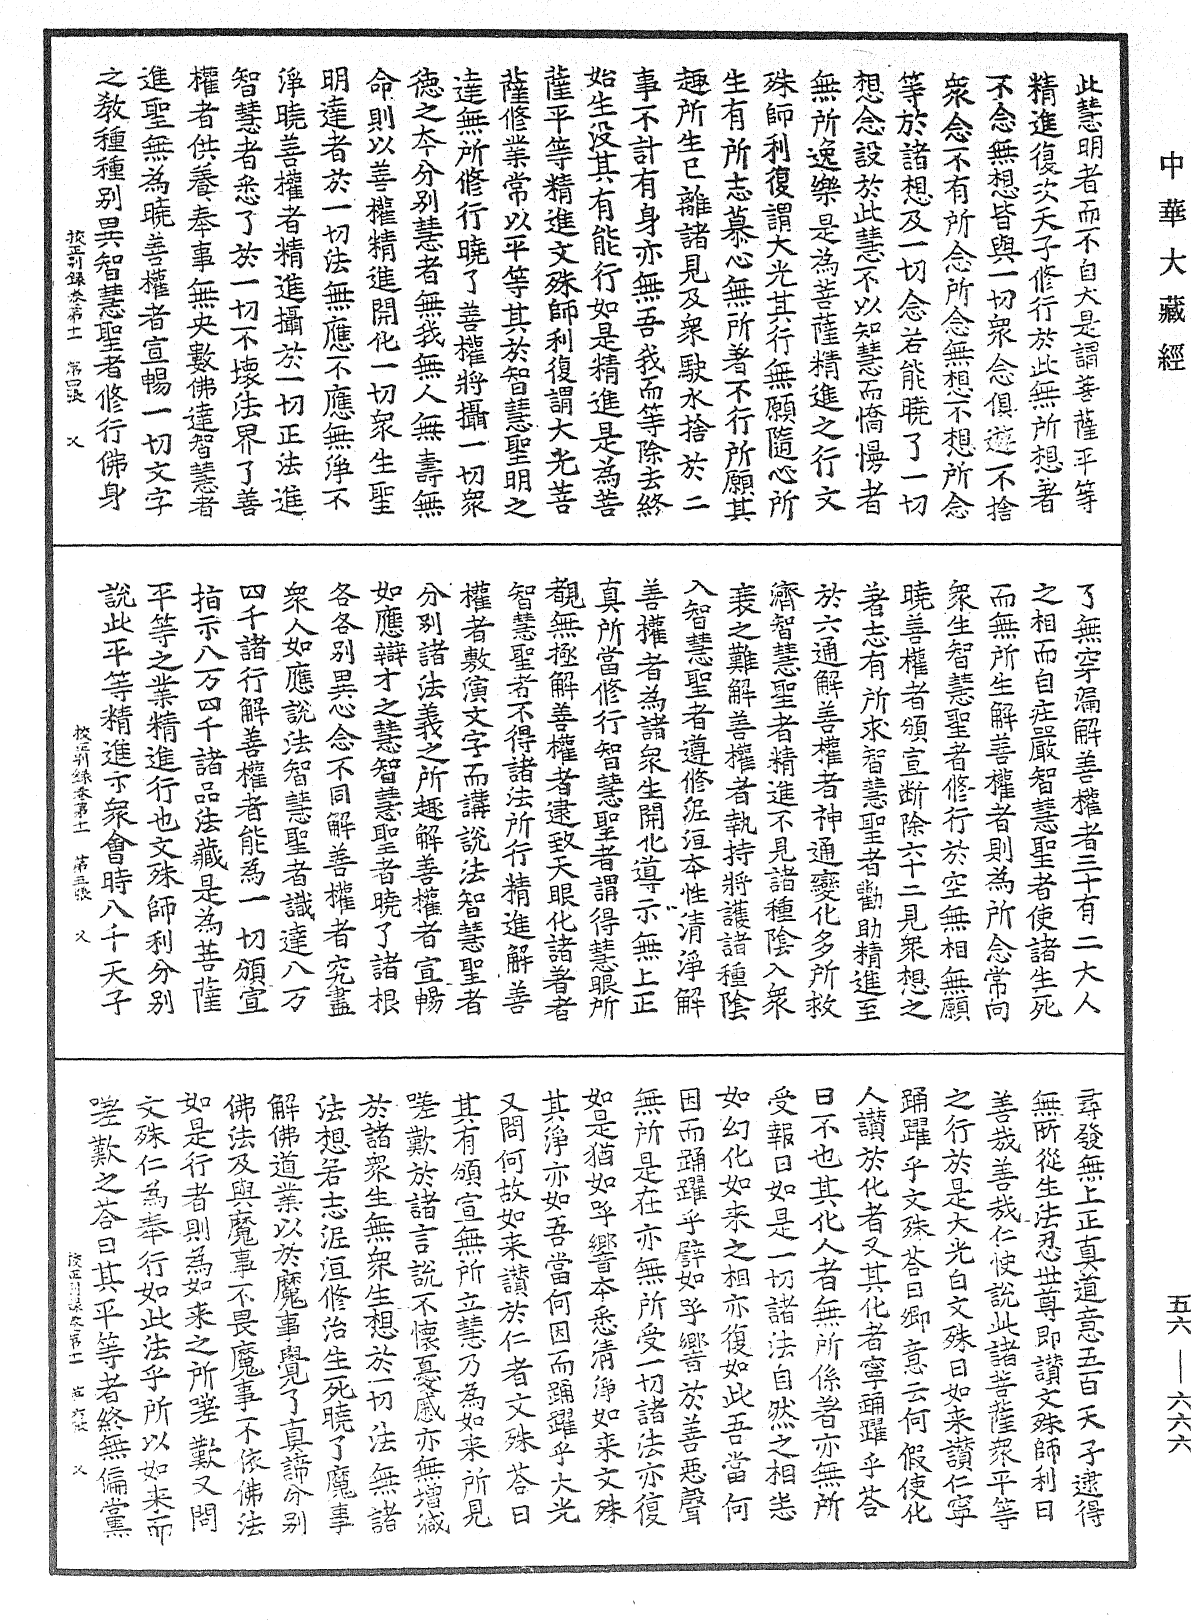 中華大藏經
此慧明者而不自大是謂菩薩平等
精進復次天子修行於此無所想著
不念無想皆與一切衆念俱遊不捨
衆念不有所念所念無想不想所念
等於諸想及一切念若能曉了一切
想念設於此慧不以智慧而憍慢者
無所逸樂是為菩薩精進之行文
殊師利復謂大光其行無願隨心所
生有所志慕心無所著不行所願其
趣所生已離諸見及衆駛水捨於二
事不計有身亦無吾我而等除去終
始生没其有能行如是精進是為菩
薩平等精進文殊師利復謂大光菩
薩修業常以平等其於智慧聖明之
達無所修行曉了善權將攝一切衆
德之本分別慧者無我無人無壽無
命則以善權精進開化一切衆生聖
明達者於一切法無應不應無淨不
淨曉善權者精進攝於一切正法進
智慧者悉了於一切不壞法界了善
權者供養奉事無央數佛達智慧者
進聖無為曉善權者宣暢一切文字
之教種種別異智慧聖者修行佛身
校正別錄卷第十一　第四張　父
了無穿漏解善權者三十有二大人
之相而自莊嚴智慧聖者使諸生死
而無所生解善權者則為所念常向
衆生智慧聖者修行於空無相無願
曉善權者頒宣斷除六十二見衆想之
著志有所求智慧聖者勸助精進至
於六通解善權者神通變化多所救
濟智慧聖者精進不見諸種陰入衆
衰之難解善權者執持將護諸種陰
入智慧聖者遵修泥洹本性清淨解
善權者為諸衆生開化導示無上正
真所當修行智慧聖者謂得慧眼所
覩無極解善權者逮致天眼化諸著者
智慧聖者不得諸法所行精進解善
權者敷演文字而講說法智慧聖者
分別諸法義之所趣解善權者宣暢
如應辯才之慧智慧聖者曉了諸根
各各別異心念不同解善權者究盡
衆人如應說法智慧聖者識達八万
四千諸行解善權者能為一切頒宣
指示八万四千諸品法藏是為菩薩
平等之業精進行也文殊師利分別
說此平等精進示衆會時八千天子
校正別錄卷第十一　第五張　父
尋發無上正真道意五百天子逮得
無所從生法忍世尊即讃文殊師利曰
善哉善哉仁快說此諸菩薩衆平等
之行於是大光白文殊曰如来讃仁寧
踊躍乎文殊荅曰卿意云何假使化
人讃於化者又其化者寧踊躍乎荅
曰不也其化人者無所係著亦無所
受報曰如是一切諸法自然之相恙
如幻化如来之相亦復如此吾當何
因而踊躍乎譬如呼響於善惡聲
無所是在亦無所受一切諸法亦復
如是猶如呼響本悉清淨如来文殊
其淨亦如吾當何因而踊躍乎大光
又問何故如来讃於仁者文殊荅曰
其有頒宣無所立慧乃為如来所見
嗟歎於諸言說不懷憂慼亦無增減
於諸衆生無衆生想於一切法無諸
法想若志泥洹修治生死曉了魔事
解佛道業以於魔事覺了真諦分别
佛法及與魔事不畏魔事不依佛法
如是行者則為如来之所嗟歎又問
文殊仁為奉行如此法乎所以如来而
嗟歎之荅曰其平等者終無偏黨
校正別錄卷第十一　第六張　父
五六—六六六